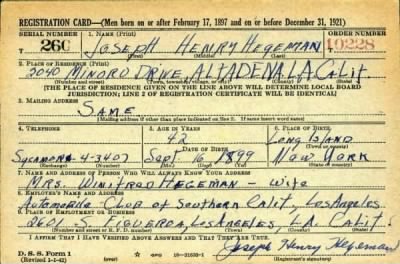 REGISTRATION CARD—(Men born on or after February 17, 1897 and on or before December 31, 1921)
SERIAL NUMBER 1. NAME (Print) ORDER NUMBER
T 260 JOSEPH HENRY HEGEMAN T 10228
(First) (Middle) (Last)
2. PLACE OF RESIDENCE (Print)
3040 MINORU DRIVE, ALTADENA L.A. Calif.
(Number and street) (Town, township, village, or city) (County) (State)
[THE PLACE OF RESIDENCE GIVEN ON THE LINE ABOVE WILL DETERMINE LOCAL BOARD
JURISDICTION; LINE 2 OF REGISTRATION CERTIFICATE WILL BE IDENTICAL]
3. MAILING ADDRESS
SAME
[Mailing address if other than place indicated on line 2. If same insert word same]
4. TELEPHONE 5. AGE IN YEARS 6. PLACE OF BIRTH
42 Long Island
DATE OF BIRTH (Town or county)
SYCAMORE-4-3407 Sept. 16 1899 New York
(Exchange) (Number) (Mo.) (Day) (Yr.) (State or country)
7. NAME AND ADDRESS OF PERSON WHO WILL ALWAYS KNOW YOUR ADDRESS
MRS. Winifred HEGEMAN - Wife
8. EMPLOYER'S NAME AND ADDRESS
Automobile Club of Southern Calif, Los Angeles
9. PLACE OF EMPLOYMENT OR BUSINESS
2601 S. FIGUEROA, Los Angeles, L.A. Calif.
(Number and street or R. F. D. number) (Town) (County) (State)
I AFFIRM THAT I HAVE VERIFIED ABOVE ANSWERS AND THAT THEY ARE TRUE.
D. S. S. Form 1
(Revised 1-1-42) (over) 16—21630-1 Joseph Henry Hegeman
(Registrant's signature)